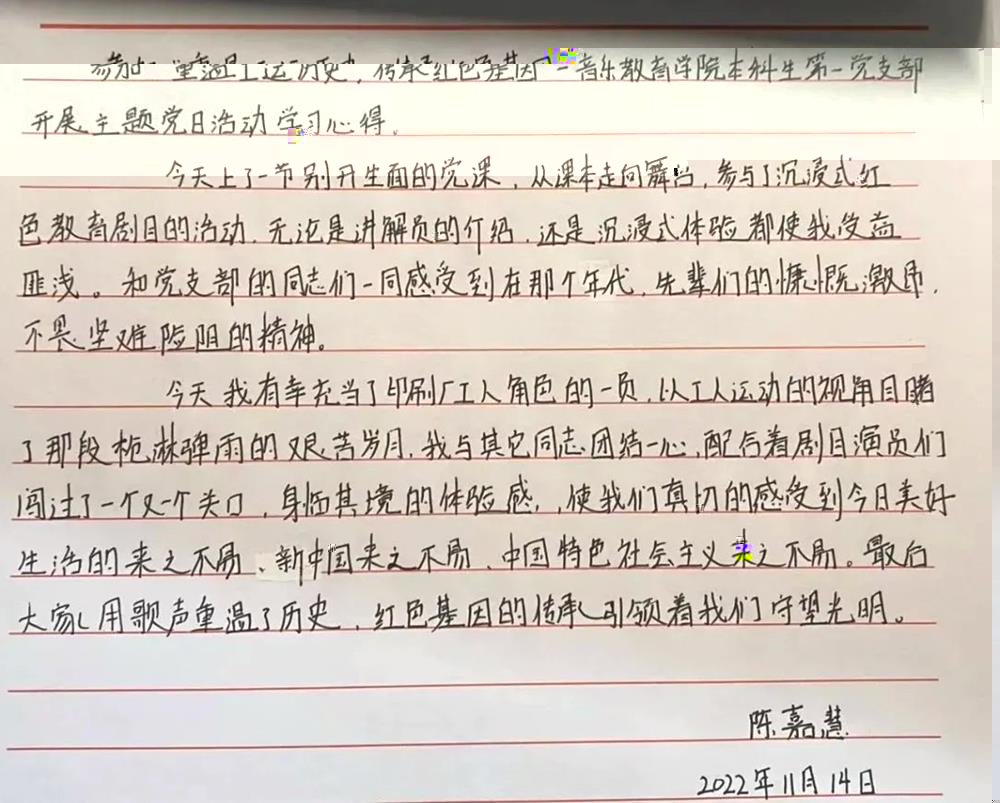 参加"重温工运历史,传承红色基因"-音乐教育学院本科生第一党支部
开展主题党日活动学习心得.
今天上了一节别开生面的党课,从课本走向舞台,参与了沉浸式红
色教育剧目的活动.无论是讲解员的介绍,还是沉浸式体验都使我受益
匪浅。和党支部的同志们一同感受到在那个年代,先辈们的慷慨激昂,
不畏坚难险阻的精神。
今天我有幸充当了印刷厂工人角色的一员,以工人运动的视角目睹
了那段枪淋弹雨的艰苦岁月,我与其它同志团结一心,配合着剧目演员们
闯过了一个又一个关口,身临其境的体验感,使我们真切的感受到今日美好
生活的来之不易、新中国来之不易、中国特色社会主义来之不易。最后
大家用歌声重温了历史,红色基因的传承引领着我们守望光明。
陈嘉慧
2022年11月14日